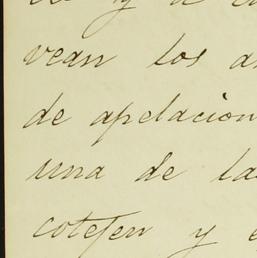 y
vean los
de apelacion
una de la
cotejen y